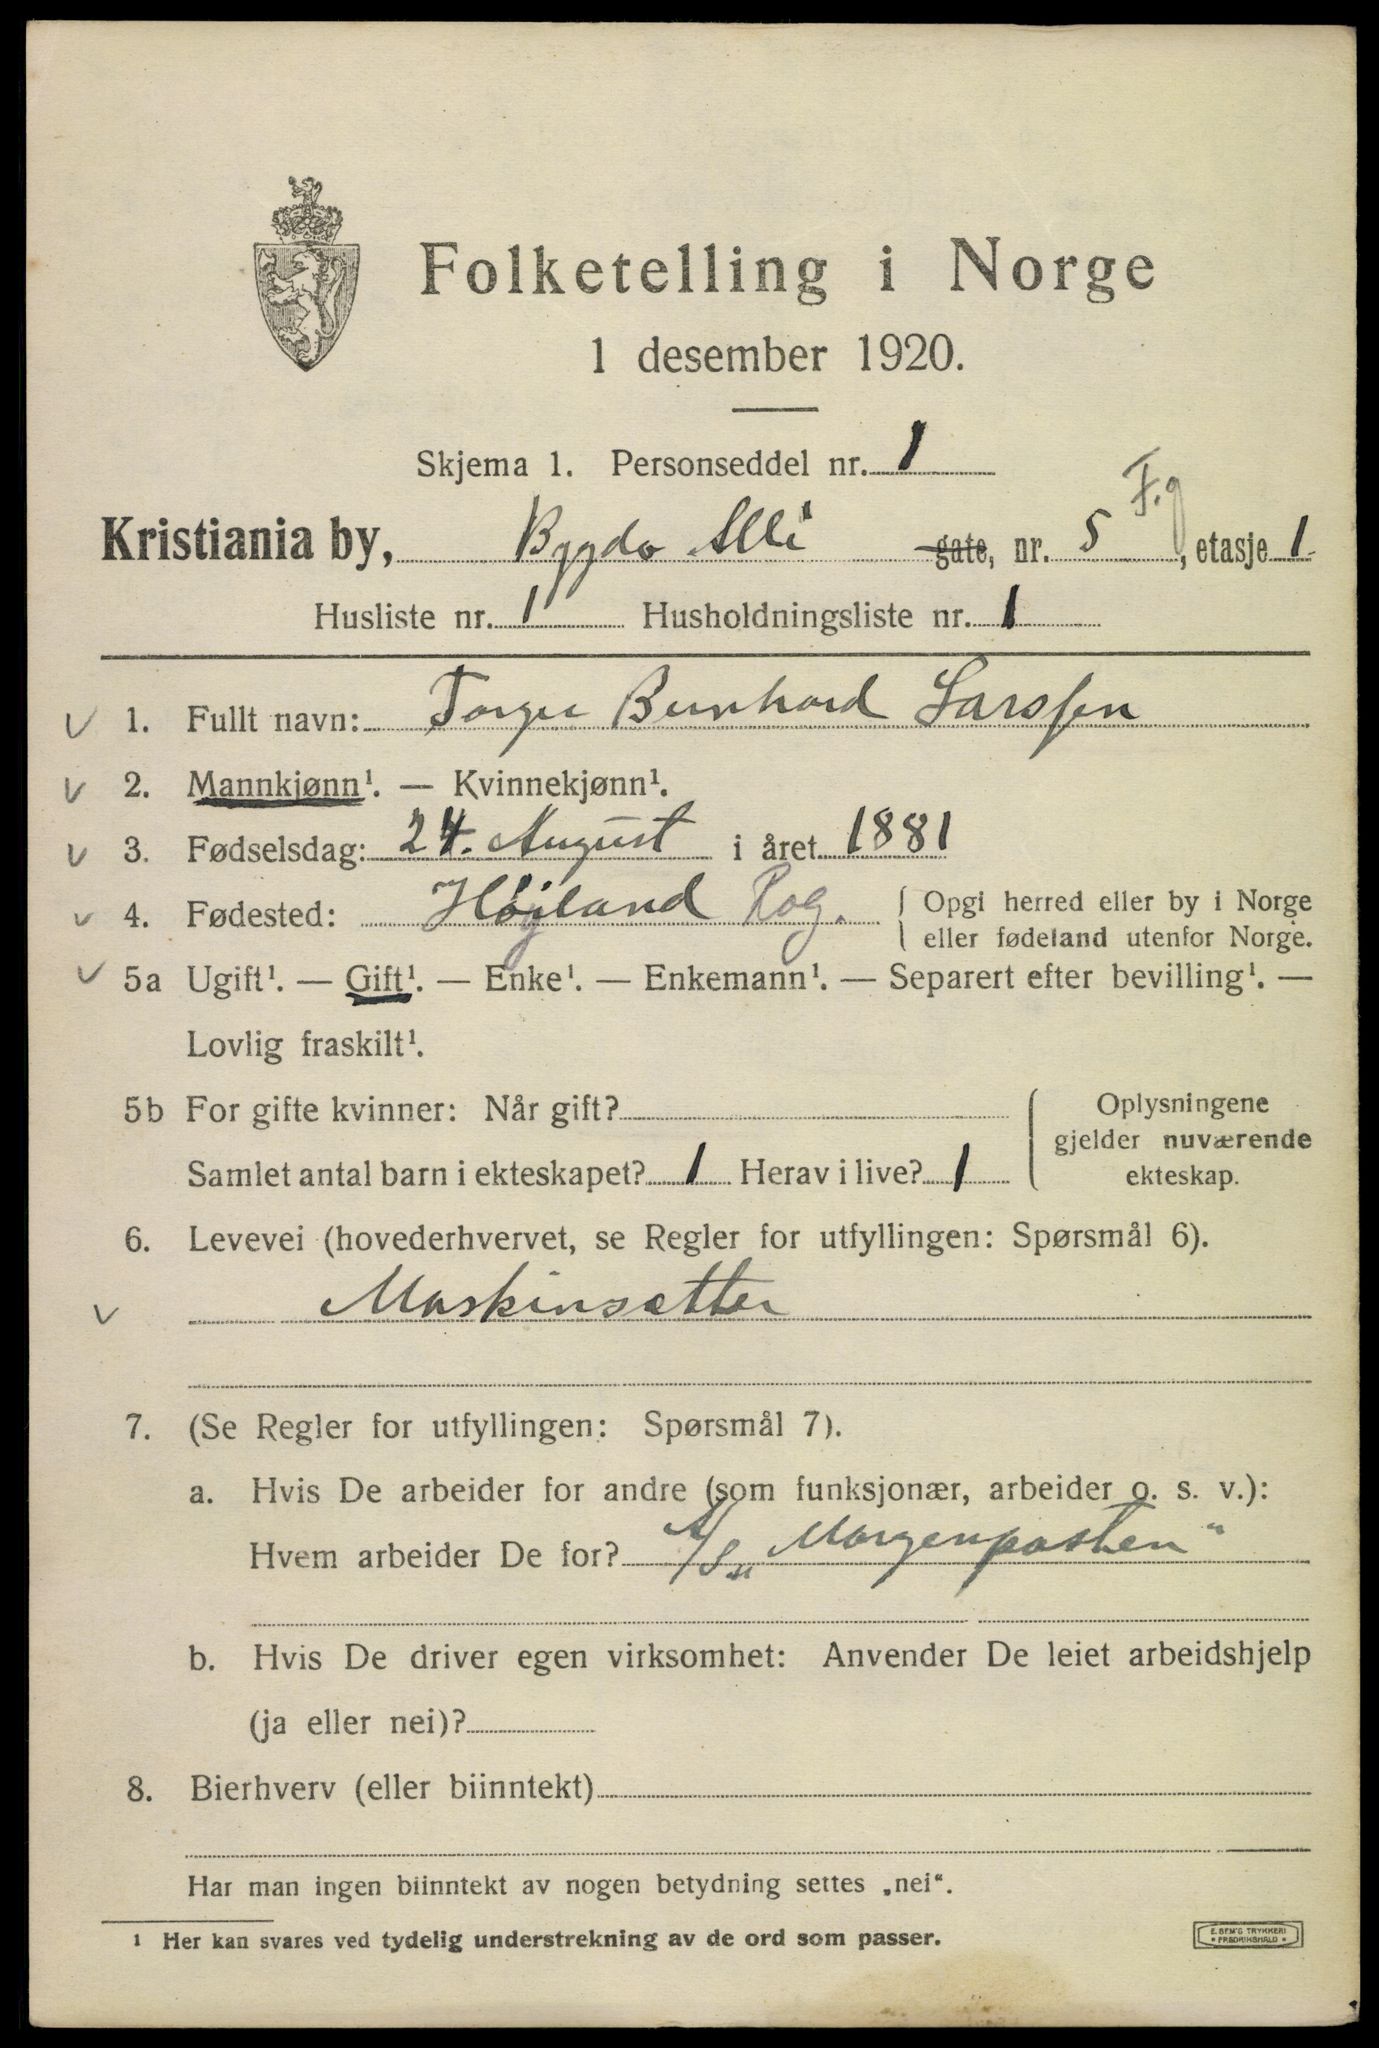 Folketelling i Norge
1 desember 1920.
Skjema 1. Personseddel nr. 1
F.g
Kristiania by, Bygdø Allé gate, nr. 5, etasje 1
Husliste nr. 1 Husholdningsliste nr. 1
1. Fullt navn: Torger Bernhard Larssen
2. Mannkjønn¹. — Kvinnekjønn¹.
3. Fødselsdag: 24. August i året 1881
4. Fødested: Høyland Rog. Opgi herred eller by i Norge
eller fødeland utenfor Norge.
5a Ugift¹. — Gift¹. — Enke¹. — Enkemann¹. — Separert efter bevilling¹. —
Lovlig fraskilt¹.
5b For gifte kvinner: Når gift? Oplysningene
gjelder nuværende
Samlet antal barn i ekteskapet? 1 Herav i live? 1 ekteskap.
6. Levevei (hovederhvervet, se Regler for utfyllingen: Spørsmål 6).
Maskinsætter
7. (Se Regler for utfyllingen: Spørsmål 7).
a. Hvis De arbeider for andre (som funksjonær, arbeider o. s. v.):
Hvem arbeider De for? A/S „Morgenposten“
b. Hvis De driver egen virksomhet: Anvender De leiet arbeidshjelp
(ja eller nei)?
8. Bierhverv (eller biinntekt)
Har man ingen biinntekt av nogen betydning settes „nei“.
¹ Her kan svares ved tydelig understrekning av de ord som passer.
E. SEM'S TRYKKERI
* FREDRIKSHALD *